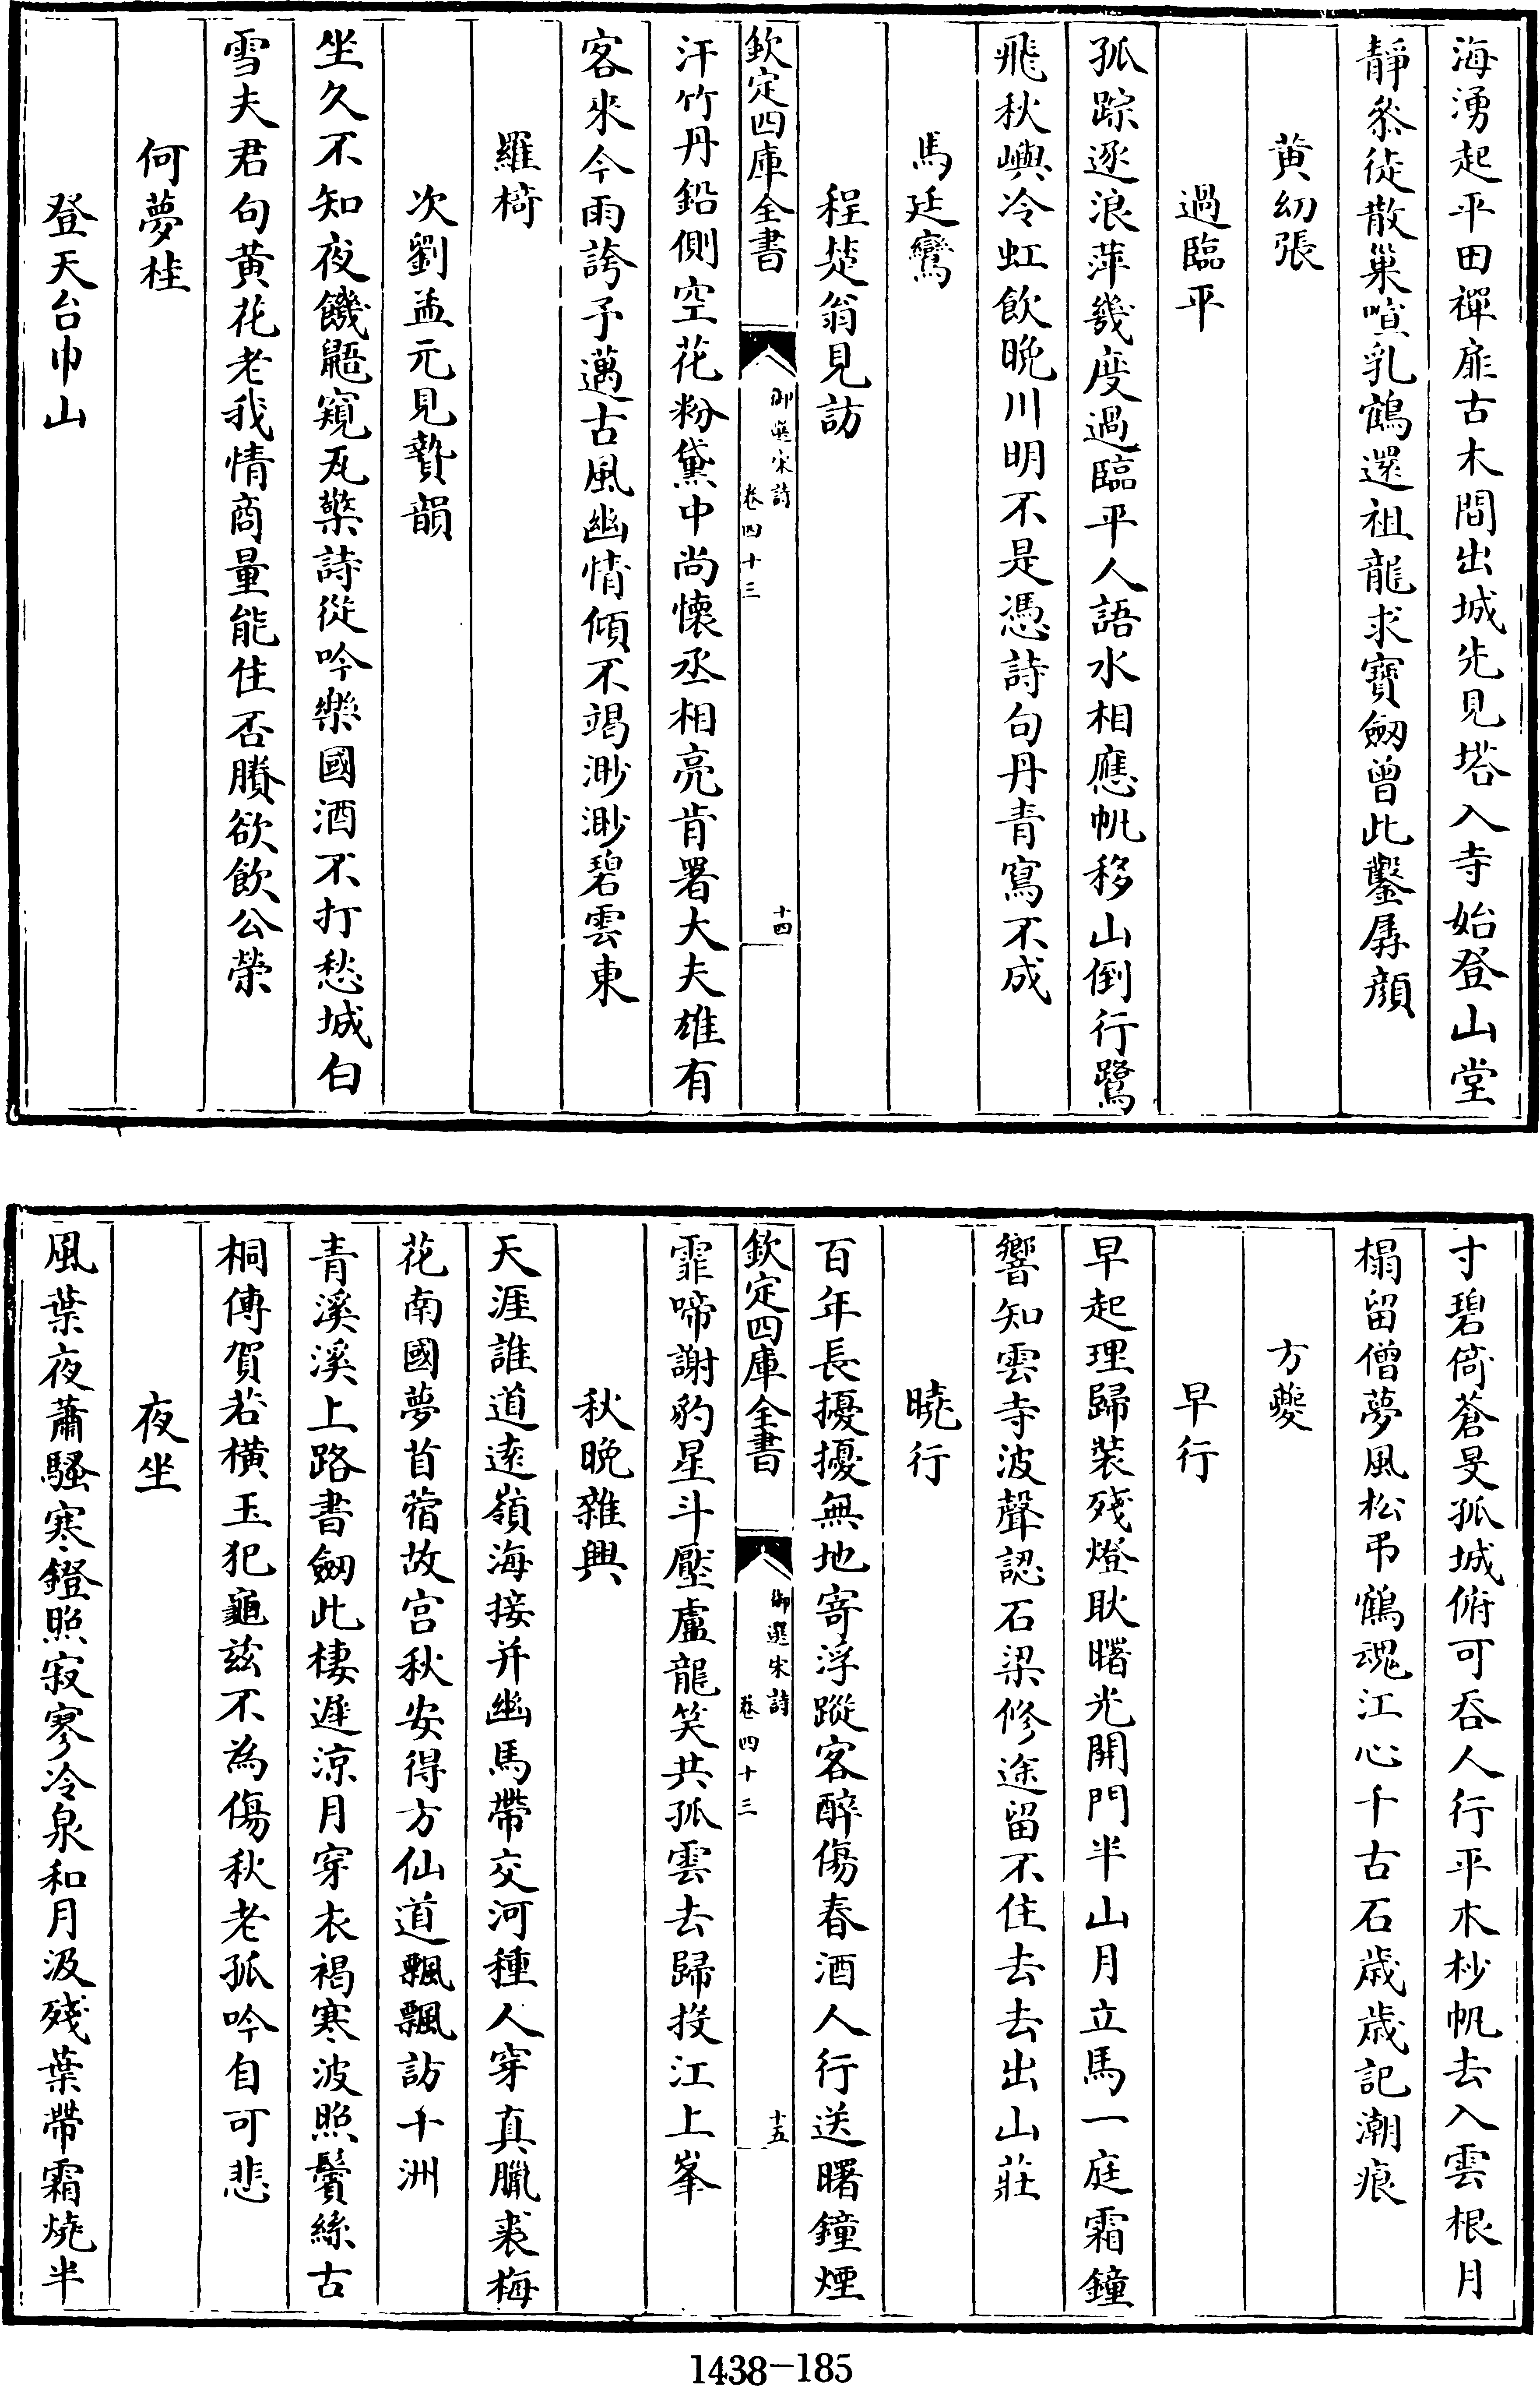 海湧起平田禪扉古木間出城先見塔入寺始登山堂
靜叅徒散巢喧乳鶴還祖龍求寶劒曾此鑿孱顔
黄幼張
過臨平
孤踪逐浪萍幾度過臨平人語水相應帆移山倒行鷺
飛秋嶼冷虹飲晩川明不是憑詩句丹青寫不成
馬廷鸞
程楚翁見訪
欽定四庫全書
御選宋詩
卷四十三
十四
汗竹丹鉛側空花粉黛中尚懷丞相亮肯署大夫雄有
客來今雨誇予邁古風幽情傾不竭渺渺碧雲東
羅椅
次劉孟元見贄韻
坐久不知夜饑鼯窺瓦檠詩從吟樂國酒不打愁城白
雪夫君句黄花老我情商量能住否賸欲飲公榮
何夢桂
登天台巾山
寸碧倚蒼旻孤城俯可吞人行平木杪帆去入雲根月
榻留僧夢風松弔鶴魂江心千古石歳歳記潮痕
方夔
早行
早起理歸裝殘燈耿曙光開門半山月立馬一庭霜鐘
響知雲寺波聲認石梁修途留不住去去出山莊
曉行
百年長擾擾無地寄浮蹤客醉傷春酒人行送曙鐘煙
欽定四庫全書
御選宋詩
卷四十三
十五
霏啼謝豹星斗壓盧龍笑共孤雲去歸投江上峯
秋晩雜興
天涯誰道遠嶺海接并幽馬帶交河種人穿真臘裘梅
花南國夢苜蓿故宫秋安得方仙道飄飄訪十洲
青溪溪上路書劒此棲遲涼月穿衣褐寒波照鬢絲古
桐傳賀若橫玉犯龜兹不為傷秋老孤吟自可悲
夜坐
風葉夜蕭騷寒鐙照寂寥冷泉和月汲殘葉帶霜燒半
1438-185